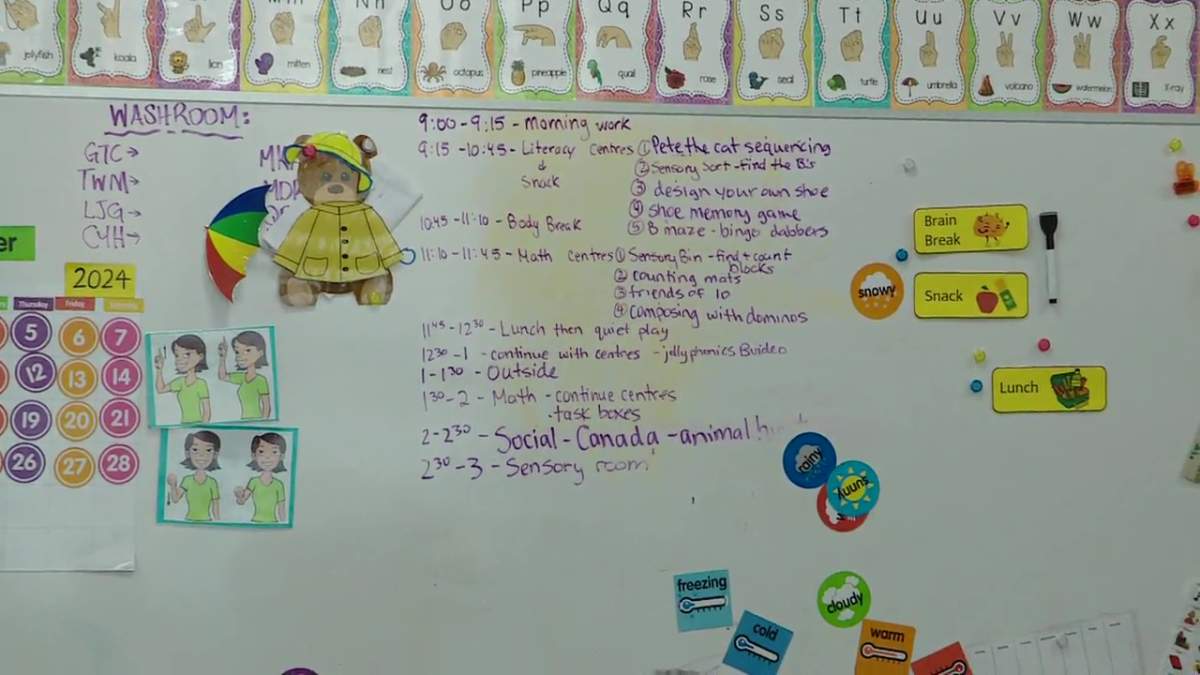 Mm Nn Oo Pp Qq Rr Ss Tt Uu Vv Ww Xx
jellyfish koala lion mitten nest octopus pineapple quail rose seal turtle umbrella volcano watermelon X-ray
WASHROOM:
GTC→
TWM→
LJG→
CYH→
9:00-9:15 - Morning work
9:15-10:45 - Literacy Centres ① Pete the cat sequencing
& ② Sensory Sort - find the B's
Snack ③ design your own shoe
④ shoe memory game
10:45-11:10 - Body Break ⑤ B maze - bingo dabbers
11:10-11:45 - Math centres ① Sensory Bin - find + count
blocks
② counting mats
③ friends of 10
④ composing with dominos
11:45-12:30 - Lunch then quiet play
12:30-1 - continue with centres - jolly phonics B video
1-1:30 - Outside
1:30-2 - Math - continue centres
·task boxes
2-2:30 - Social - Canada - animal
2:30-3 - Sensory room
er
2024
Thursday Friday
5 6 7
12 13 14
19 20 21
26 27 28
Brain
Break
snowy
Snack
Lunch
rainy
sunny
freezing
cloudy
cold
warm